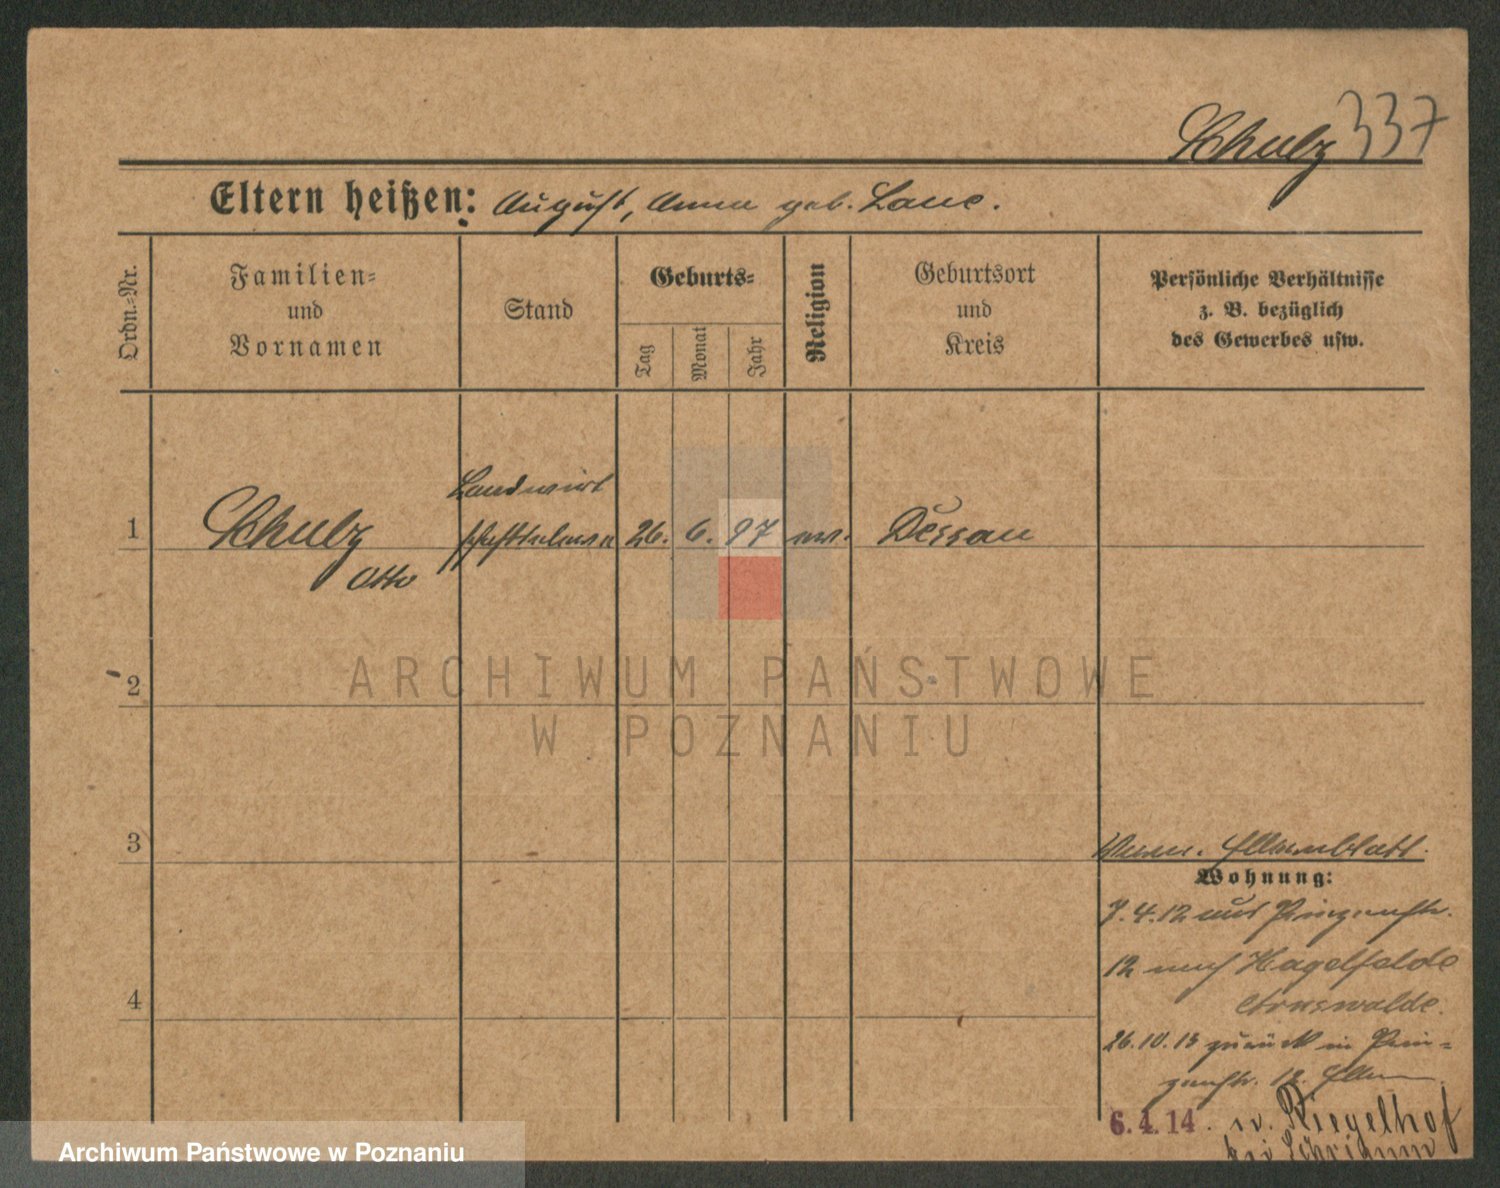 Schulz 337
Eltern heißen: August, Anna geb. Lane.
Ordn.=Nr.
Familien=
und
Vornamen
Stand
Geburts=
Tag
Monat
Jahr
Religion
Geburtsort
und
Kreis
Persönliche Verhältnisse
z. B. bezüglich
des Gewerbes usw.
Landwirt
1 Schulz 26. 6. 97 ev. Dessau
Otto
2
3
4
Elternblatt.
Wohnung:
7.4.12 aus Prinzenstr.
12 nach Hagelfelde
Arnswalde.
26.10.13 zurück in Prin=
zenstr. 12. Eltern
6.4.14. n. Riegelhof
bei Schrimm
ARCHIWUM PAŃSTWOWE
W POZNANIU
Archiwum Państwowe w Poznaniu